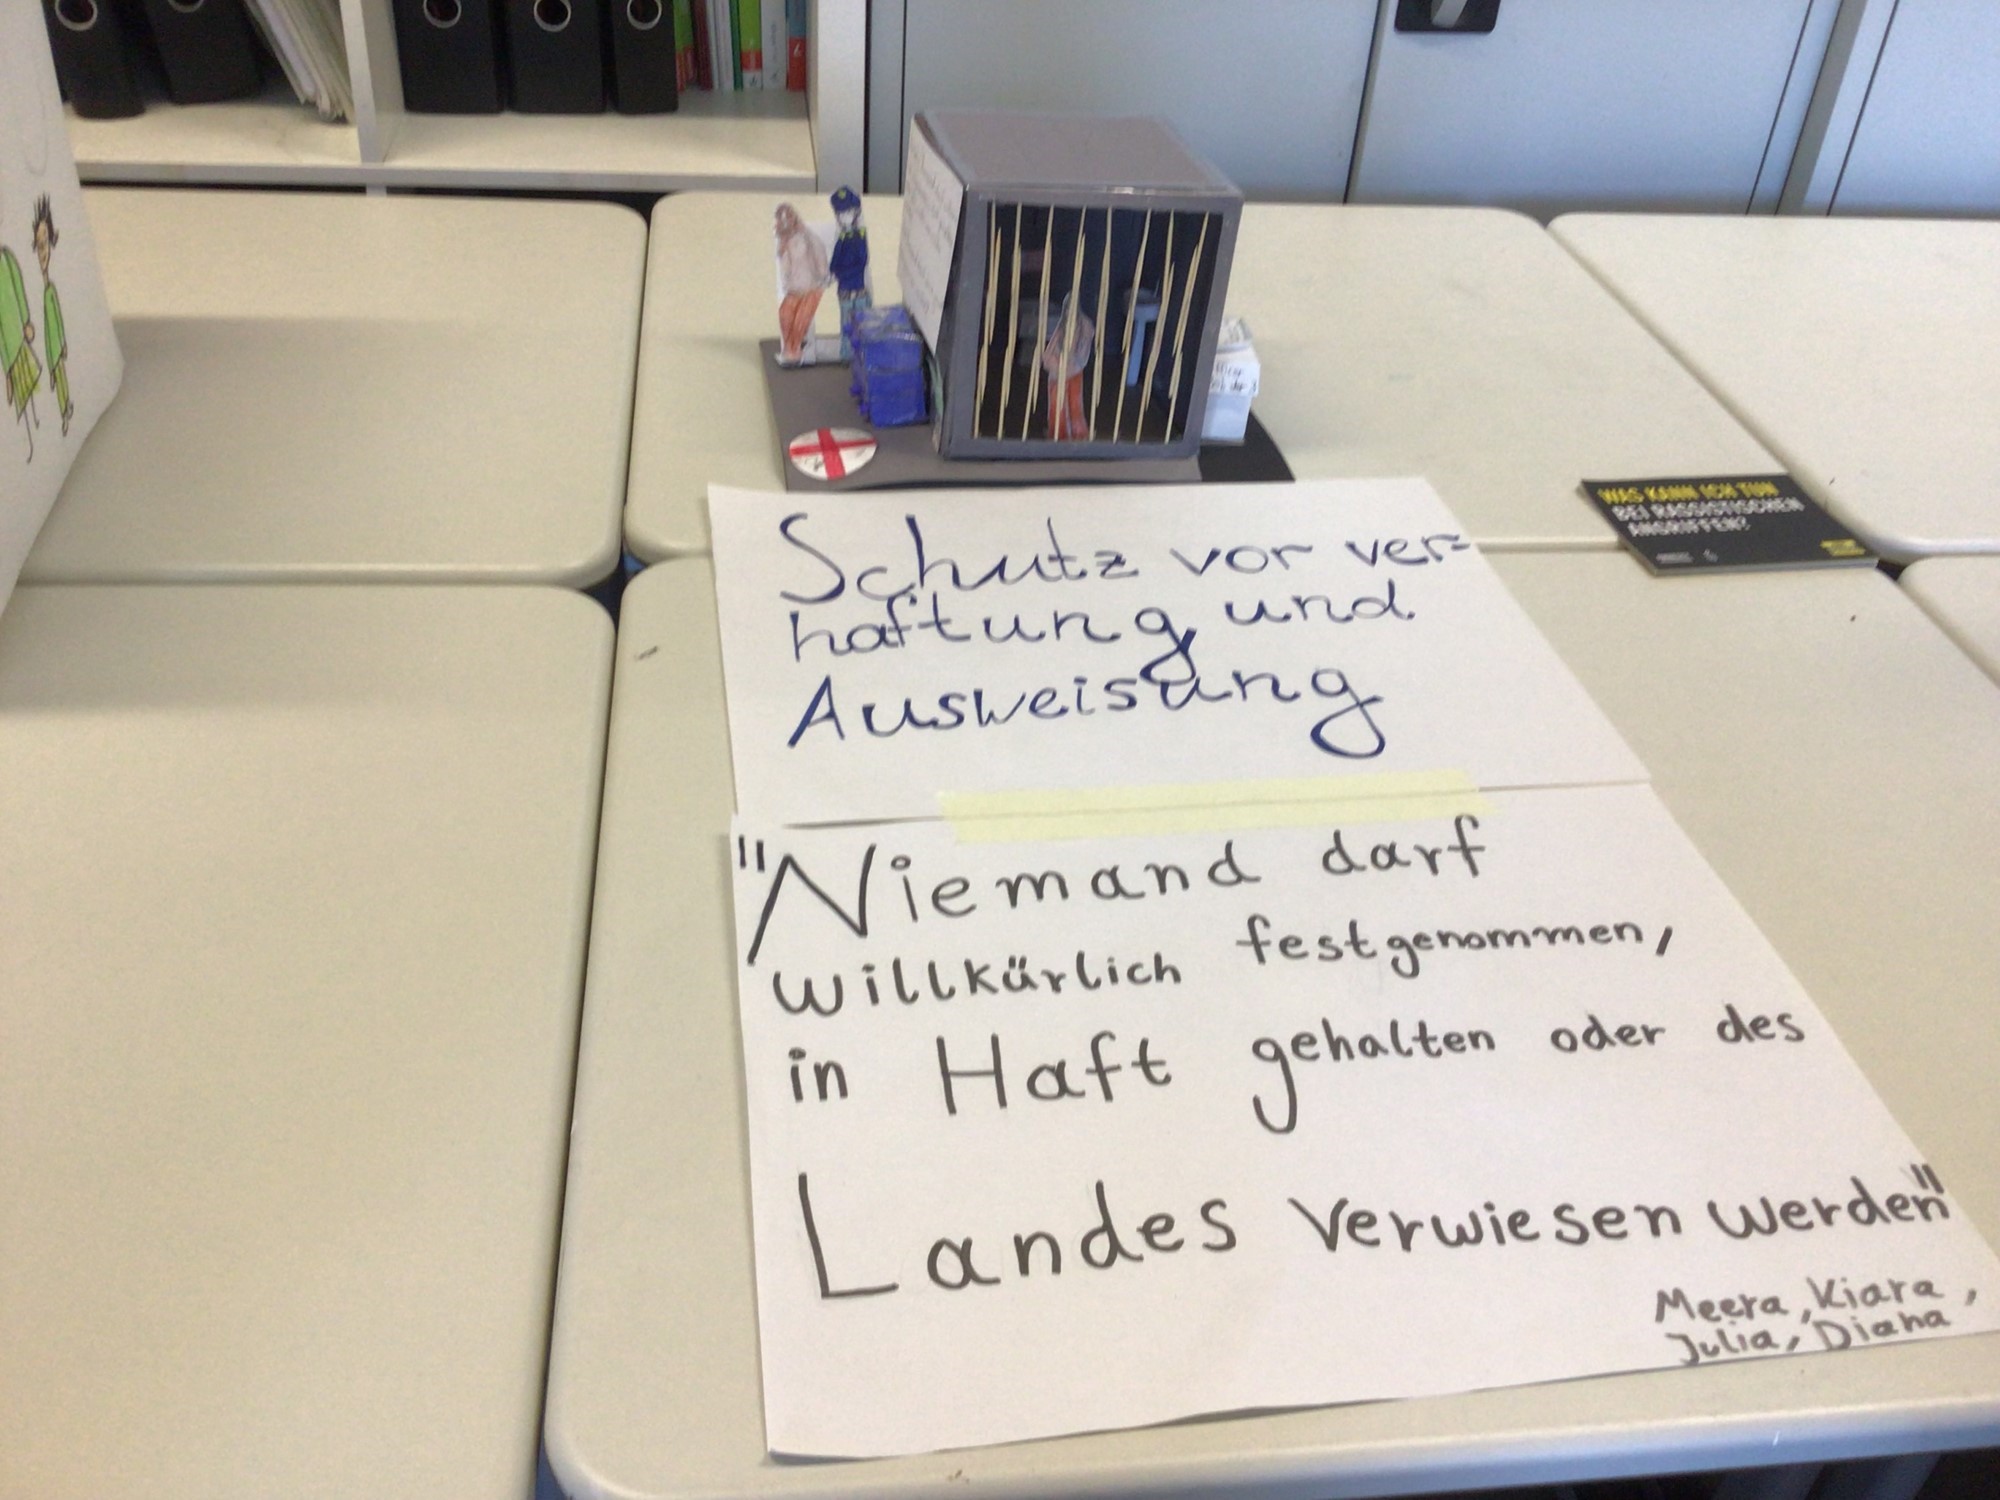 Schutz vor ver=
haftung und
Ausweisung
"Niemand darf
willkürlich festgenommen,
in Haft gehalten oder des
Landes verwiesen werden"
Meera, Kiara,
Julia, Diana
WAS KANN ICH TUN
BEI RASSISTISCHEN
ANGRIFFEN?